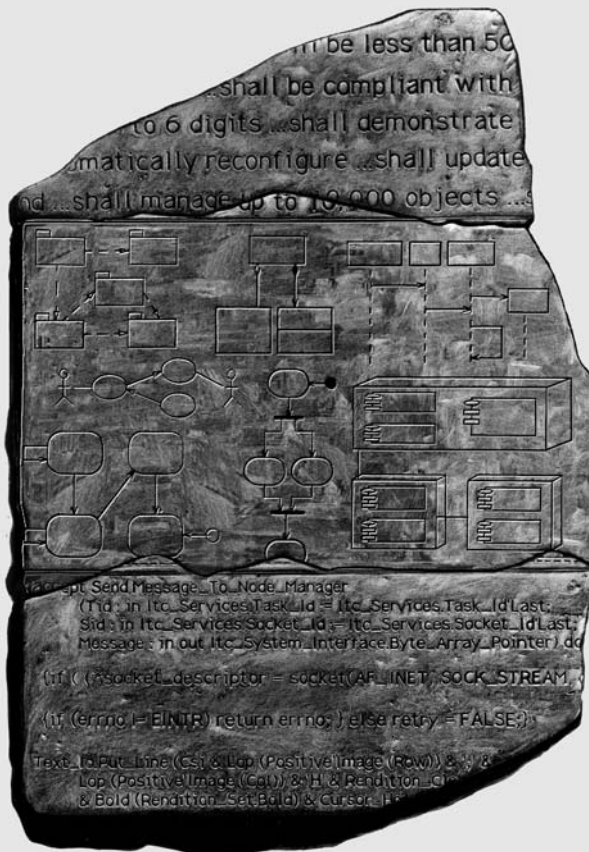 be less than 50
...shall be compliant with
to 6 digits ...shall demonstrate
omatically reconfigure ...shall update
nd ...shall manage up to 10,000 objects ...s
accept Send_Message_To_Node_Manager
(Tid : in Itc_Services.Task_Id := Itc_Services.Task_Id'Last;
Sid : in Itc_Services.Socket_Id := Itc_Services.Socket_Id'Last;
Message : in out Itc_System_Interface.Byte_Array_Pointer) do
{if ( (*socket_descriptor = socket(AF_INET, SOCK_STREAM,
{if (errno != EINTR) return errno; } else retry = FALSE;}
Text_Io.Put_Line (Csi & Lop (Positive'Image (Row)) & ';' &
Lop (Positive'Image (Col)) & 'H' &
& Bold (Rendition_Set.Bold) &